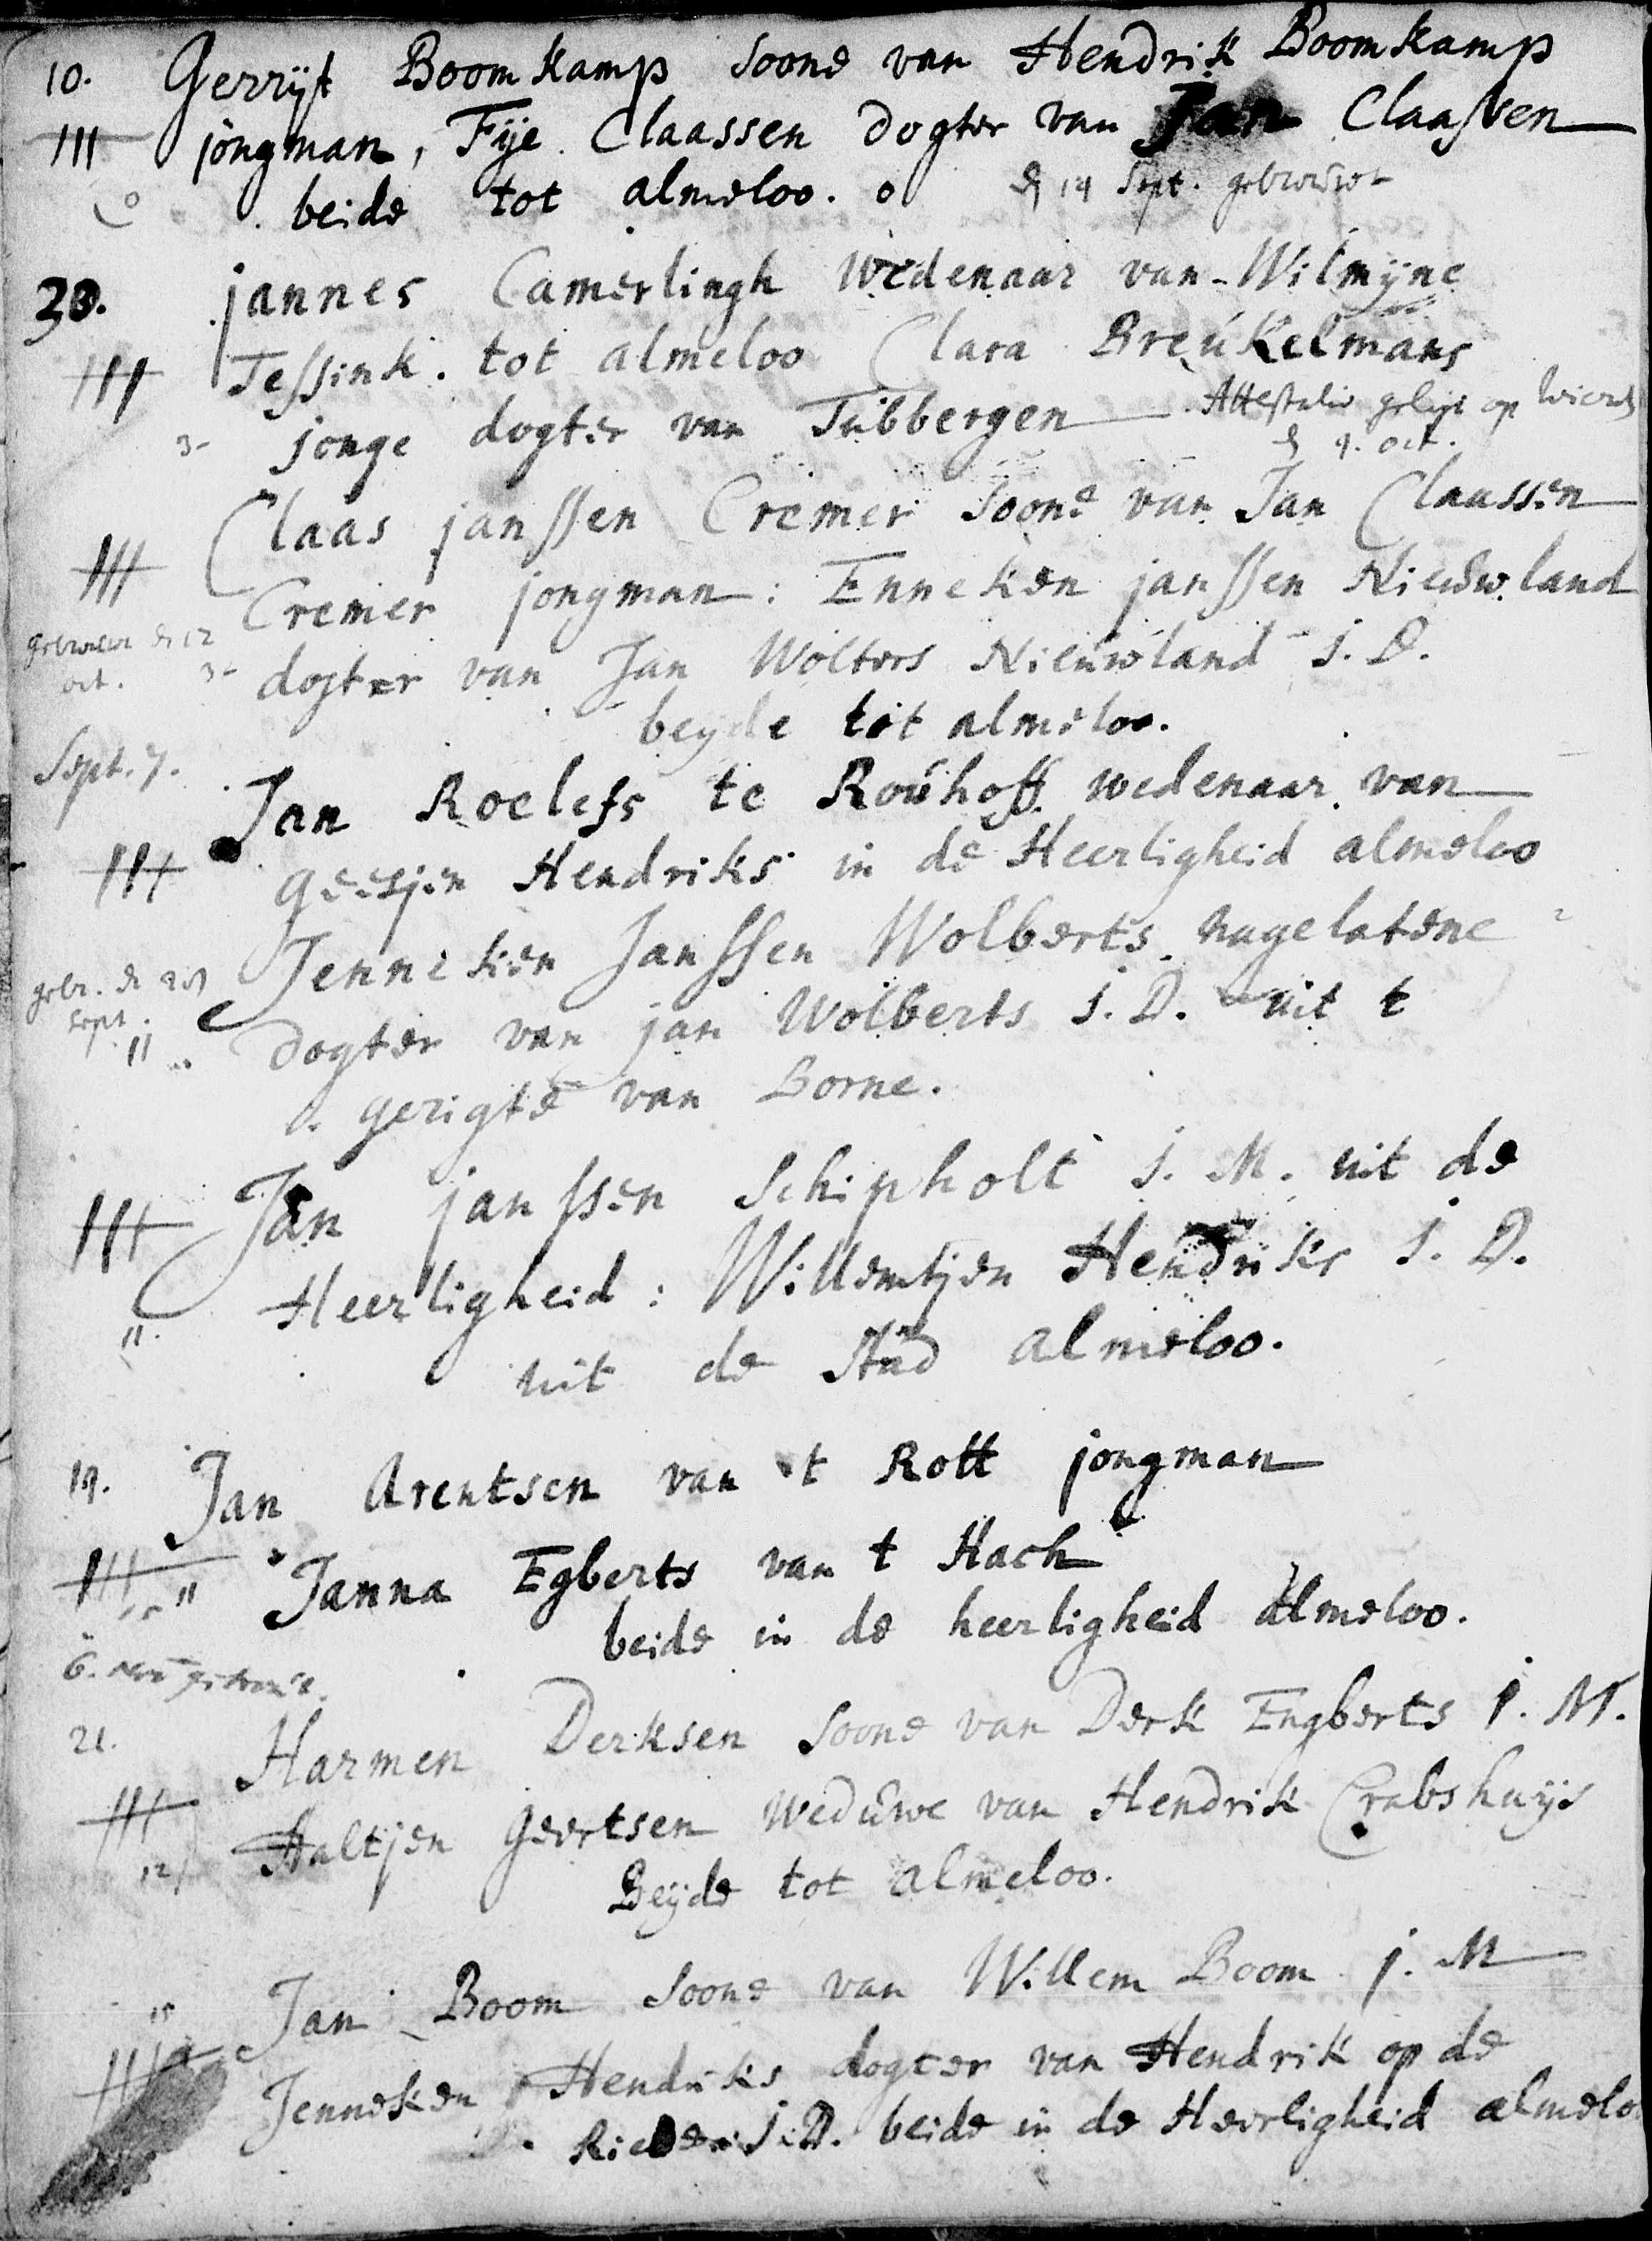 10. Gerryt Boomkamp Soone van Hendrik Boomkamp
III jongman, Fije Claassen dogter van Jan Claassen
beide tot almeloo. o d 14 Sept. getrouwt
30. jannes Camerlingh Wedenaar van Wilmijne
III Tessink. tot almeloo Clara Breukelmans
3- jonge dogter van Tubbergen Attestatie op
d 9. oct.
Claas janssen Cremer Soone van Jan Claassen
III Cremer jongman: Enneken janssen Nieuwland
getrouwt d 12
oct. 3- dogter van Jan Wolters Nieuwland J. D.
beyde tot almeloo.
Sept. 7. Jan Roelefs te Rouhoff wedenaar van
III Geesjen Hendriks in de Heerligheid almeloo
Jenneken Janssen Wolberts nagelatene
getr. d 28
Sept. 11 dogter van jan Wolberts J. D. uit t
gerigte van Borne.
III Jan janssen Schipholt J. M. uit de
11. Heerligheid: Willemtjen Hendriks J. D.
uit de Stad almeloo.
19. Jan Arentsen van t Rott jongman
III 11 Janna Egberts van t Hach
beide in de heerligheid Almeloo.
6. nov getrouwt.
21. Harmen Derksen Soone van Derk Engberts J. M.
III Aaltjen Geertsen Weduwe van Hendrik Crabshuys
12 Beyde tot Almeloo.
15 Jan Boom Soone van Willem Boom j. M
III Jenneken Hendriks dogter van Hendrik op de
J. D. beide in de Heerligheid almelo